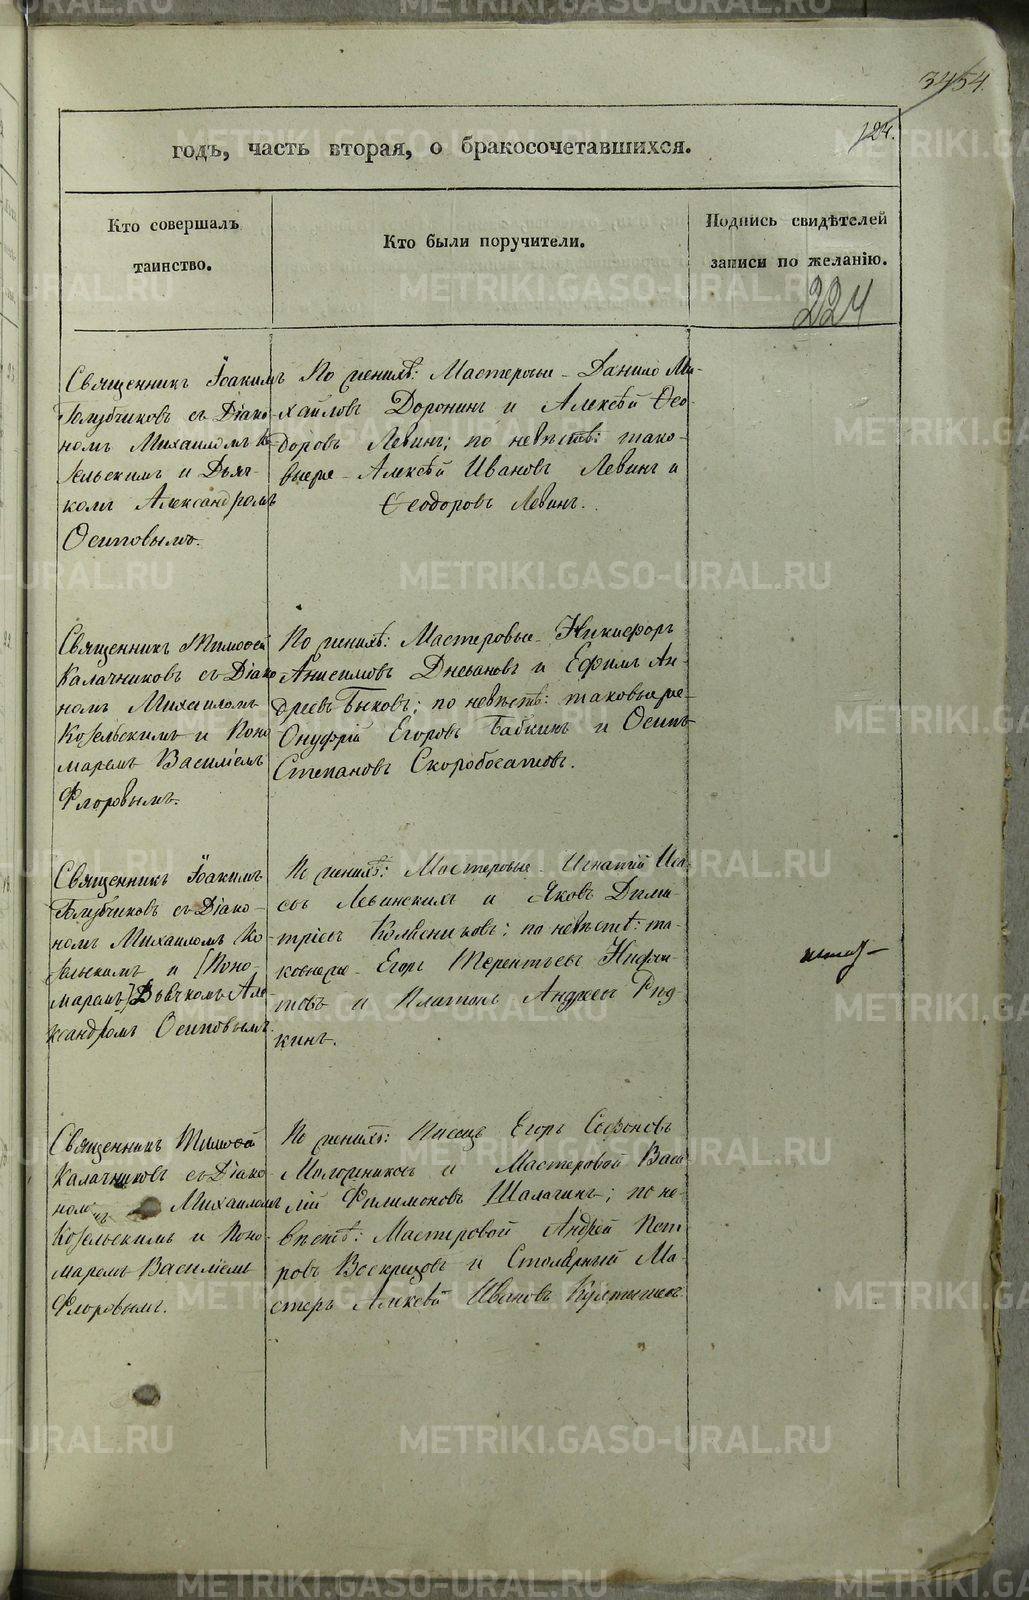 3454.
124.
годъ, часть вторая, о бракосочетавшихся.
Кто совершалъ
таинство.
Кто были поручители.
Подпись свидѣтелей
записи по желанію.
224
Священникъ Іоакимъ
Голубчиковъ съ Діако-
номъ Михаиломъ Ко-
зельскимъ и Дьяч-
комъ Александромъ
Осиповымъ.
По женихѣ: Мастеровые - Данило Ми-
хайловъ Доронинъ и Алексѣй Ѳео-
доровъ Левинъ; по невѣстѣ: тако-
выеже - Алексѣй Ивановъ Левинъ и
Ѳеодоровъ Левинъ.
Священникъ Тимоѳей
Калачниковъ съ Діако
номъ Михаиломъ
Козельскимъ и Поно
маремъ Василіемъ
Флоровымъ.
По женихѣ: Мастеровые - Никифоръ
Анисимовъ и Ефимъ Ан-
дреевъ Быковъ; по невѣстѣ: таковыеже -
Онуфрій Егоровъ Бабкинъ и Осипъ
Степановъ Скоробогатовъ.
Священникъ Іоакимъ
Голубчиковъ съ Діако-
номъ Михаиломъ Ко-
зельскимъ и [Поно-
маремъ] Дьячкомъ Але-
ксандромъ Осиповымъ.
По женихѣ: Мастеровые - Игнатій Иса-
евъ Левинскихъ и Яковъ Дими-
тріевъ Колесниковъ; по невѣстѣ: та-
ковыеже - Егоръ Терентьевъ
и Платонъ Андреевъ
кинъ.
Священникъ Тимоѳей
Калачниковъ съ Діако
номъ Михаиломъ
Козельскимъ и Поно-
маремъ Василіемъ
Флоровымъ.
По женихѣ: Писецъ Егоръ Софоновъ
и Мастеровой Васи
лій Филимоновъ Шалагинъ; по не-
вѣстѣ: Мастеровой Андрей Пет
ровъ и Столярный Ма-
стеръ Алексѣй Ивановъ
METRIKI.GASO-URAL.RU